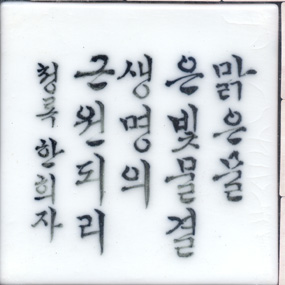 맑은물
은빛물결
생명의
근원되리
청록 한희자